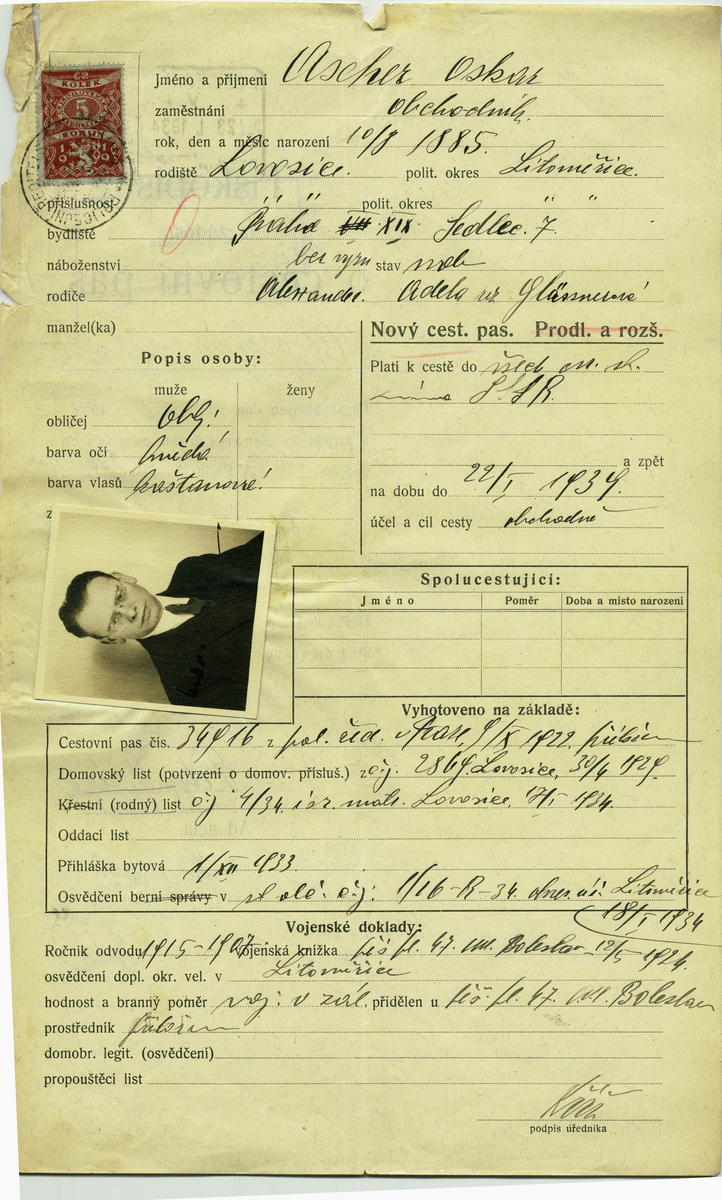 KOLEK
5
KORUN
Jméno a příjmení Ascher Oskar
zaměstnání obchodník.
rok, den a měsíc narození 10/8 1885.
rodiště Lovosice. polit. okres Litoměřice.
příslušnost " " polit. okres " "
bydliště Praha XIX Sedlec. 7.
náboženství bez vyzn stav
rodiče Alexander. Adela roz. Glässnerová
manžel(ka)
Nový cest. pas. Prodl. a rozš.
Popis osoby:
muže ženy
obličej obl.
barva očí hnědá
barva vlasů kaštanové
Platí k cestě do všech
SSSR.
a zpět
na dobu do 22/I 1939.
účel a cíl cesty obchodně
Spolucestující:
Jméno Poměr Doba a místo narození
Vyhotoveno na základě:
Cestovní pas čís. 34916 z pol. řed. 1922.
Domovský list (potvrzení o domov. přísluš.) z čj. 2869 Lovosice, 30/4 1929.
Křestní (rodný) list čj 4/34 isr. matr. Lovosice. 17/I 1934.
Oddací list
Přihláška bytová 1/XII 1933.
Osvědčení berní správy v čj: 1/16-R-34. Litoměřice
18/I 1934
Vojenské doklady:
Ročník odvodu 1915-1907 Vojenská kniha pěš. pl. 47. Ml. Boleslav 12/5 1924.
osvědčení dopl. okr. vel. v Litoměřice
hodnost a branný poměr voj. v zál. přidělen u pěš. pl. 47. Ml. Boleslav
prostředník
domobr. legit. (osvědčení)
propouštěcí list
podpis úředníka